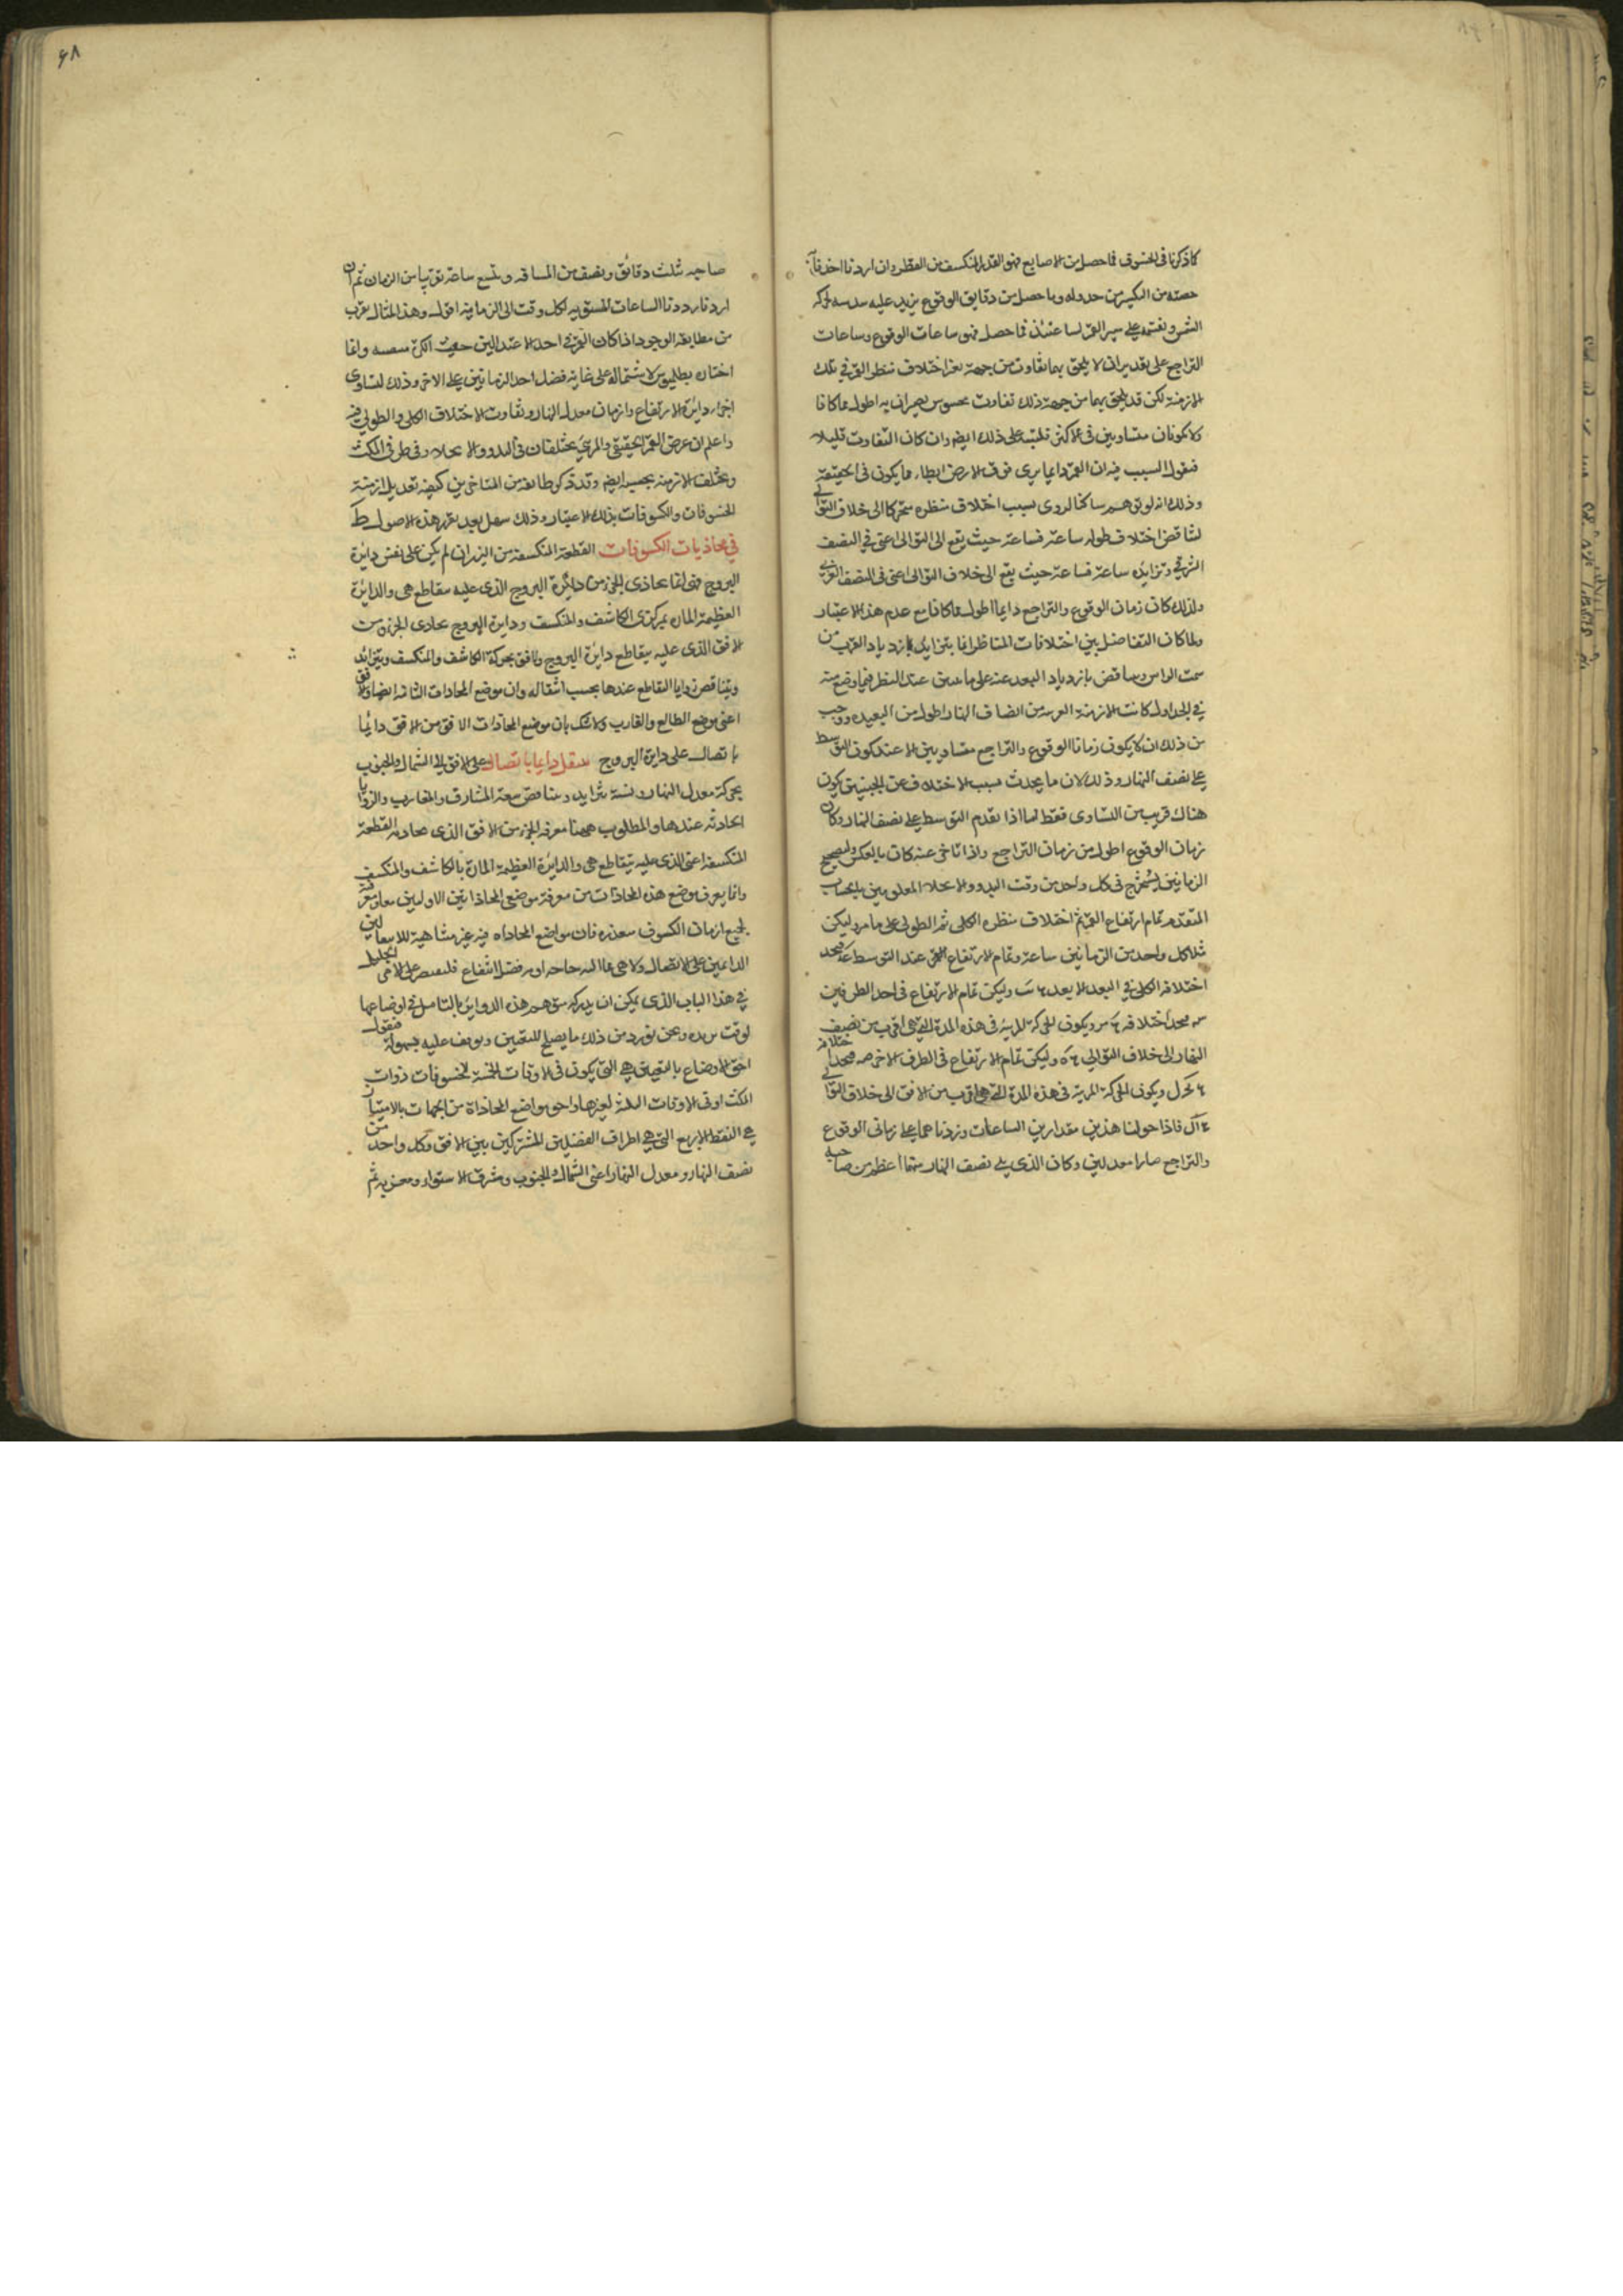 كما ذكرنا فى الخسوف فما حصل من الاصابع فهو القدر المنكسف من القطر وان اردنا اخذنا
حصته من التكسير من جدوله وما حصل من دقايق الوقوع نزيد عليه سدسه لحركة
الشمس ونقسمه على سير القمر لساعتئذ فما حصل فهو ساعات الوقوع وساعات
التراجع على تقدير ان لا يلحق بهما تفاوت من جهة تغير اختلاف منظر القمر فى تلك
الازمنة لكن قد يلحق بهما من جهة ذلك تفاوت محسوس يصيران به اطول مما كانا
ولا يكونان متساويين فى الاكثر فلننبه على ذلك ايضا وان كان التفاوت قليلا
فنقول السبب فيه ان القمر دايما يرى فوق الارض ابطاء مما يكون فى الحقيقة
وذلك انه لو توهم ساكنا لروى بسبب اختلاف منظره متحركا الى خلاف التوالى
لتناقص اختلاف طوله ساعة فساعة حيث يقع الى التوالى اعنى فى النصف
الشرقى وتزايده ساعة فساعة حيث يقع الى خلاف التوالى اعنى فى النصف الغربى
ولذلك كان زمان الوقوع والتراجع دايما اطول مما كانا مع عدم هذا الاعتبار
ولما كان التفاضل بين اختلافات المناظر انما يتزايد بازدياد القرب من
سمت الراس ويتناقص بازدياد البعد عنه على ما تبين عند النظر فيما وضع منه
فى الجداول كانت الازمنة القريبة من انصاف النهار اطول من البعيدة ووجب
من ذلك ان لا يكون زمانا الوقوع والتراجع متساويين الا عند كون التوسط
على نصف النهار وذلك لان ما يحدث بسبب الاختلاف عن الجنبتين يكون
هناك قريب من التساوى فقط اما اذا تقدم التوسط على نصف النهار وكان
زمان الوقوع اطول من زمان التراجع واذا تاخر عنه كان بالعكس ولتصحيح
الزمانين يستخرج فى كل واحد من وقت البدو والانجلا المعلومين بالحساب
المتقدم تمام ارتفاع القمر ثم اختلاف منظره الكلى ثم الطولى على ما مر وليكن
مثلا كل واحد من الزمانين ساعة وتمام الارتفاع للقمر عند التوسط عه فنجد
اختلافه الكلى فى البعد الابعد وليكن تمام الارتفاع فى احد الطرفين
فنجد اختلافه ويكون للحركة المرئية فى هذه المدة التى هى اقرب من نصف
النهار الى خلاف التوالى وليكن تمام الارتفاع فى الطرف الاخر فنجد اختلافه
ويكون الحركة المرئية فى هذه المدة التى هى اقرب من الافق الى خلاف التوالى
فاذا حولنا هذين مقدارين الساعات وزدناهما على زمانى الوقوع
والتراجع صارا معدلين وكان الذى يلى نصف النهار منهما اعظم من صاحبه
صاحبه بثلث دقائق ونصف من المسافة وبتسع ساعة تقريبا من الزمان ثم ان
اردنا رددنا الساعات المستوية لكل وقت الى الزمانية اقول وهذا المثال يقرب
من مطابقة الوجود اذا كان القمر فى احد الاعتدالين حيث وانما
اختاره بطلميوس لاشتماله على غاية فضل احد الزمانين على الاخر وذلك لتساوى
اجزاء دائرة الارتفاع وازمان معدل النهار وتفاوت الاختلاف الكلى والطولى فيه
واعلم ان عرض القمر الحقيقى والمرئى يختلفان فى البدو والانجلاء وفى طرفى المكث
ويختلف الازمنة بحسبه ايضا وقد ذكر طائفة من المتاخرين كيفية تعديل ازمنة
الخسوفات والكسوفات بذلك الاعتبار وذلك سهل بعد تقرر هذه الاصول ط
فى محاذيات الكسوفات القطعة المنكسفة من النيرين ان لم يكن على نفس دائرة
البروج فهى انما تحاذى الجزء من دائرة البروج الذى عليه يتقاطع هى والدائرة
العظيمة المارة بمركزى الكاشف والمنكسف ودايرة البروج تحاذى الجزء من
الافق الذى عليه يتقاطع دائرة البروج والافق بحركة الكاشف والمنكسف ويتزائد
ويتناقص زوايا التقاطع عندها بحسب انتقاله وان موضع المحاذات الثانية ايضا والافق
اعنى موضع الطالع والغارب ولا شك بان موضع المحاذات الافق من الافق دايما
باتصال على دايرة البروج ينتقل دايما باتصال على الافق الى الشمال والجنوب
بحركة معدل النهار ونسبة تتزايد وتتناقص سعة المشارق والمغارب والزوايا
الحادثة عندها والمطلوب ههنا معرفة الجزء من الافق الذى تحاذيه القطعة
المنكسفة اعنى الذى عليه يتقاطع هى والدائرة العظيمة المارة بالكاشف والمنكسف
وانما يعرف موضع هذه المحاذات من معرفة موضعى المحاذاتين الاوليين معا ومعرفته
لجميع ازمان الكسوف متعذرة فان مواضع المحاذاة فيه غير متناهية للانتقالين
الدائمين على الاتصال ولا هى مما اليه حاجة او به فضل انتفاع فلنقتصر على الامر الجليل
فى هذا الباب الذى يمكن ان يدركه متوهم هذه الدواير بالتامل فى اوضاعها
لوقت يريده ونحن نورد من ذلك ما يصلح للتعيين ويوقف عليه بسهولة فنقول
احق الاوضاع بالتعيين هى التى يكون فى الاوقات الخمسة لخسوفات ذوات
المكث او فى الاوقات الثلثة لغيرها واحق مواضع المحاذاة من الجهات بالامتياز
هى النقط الاربع التى هى اطراف الفصلين المشتركين بين الافق وكل واحد من
نصف النهار ومعدل النهار اعنى الشمال والجنوب ومشرق الاستواء ومغربه ثم
۶۸